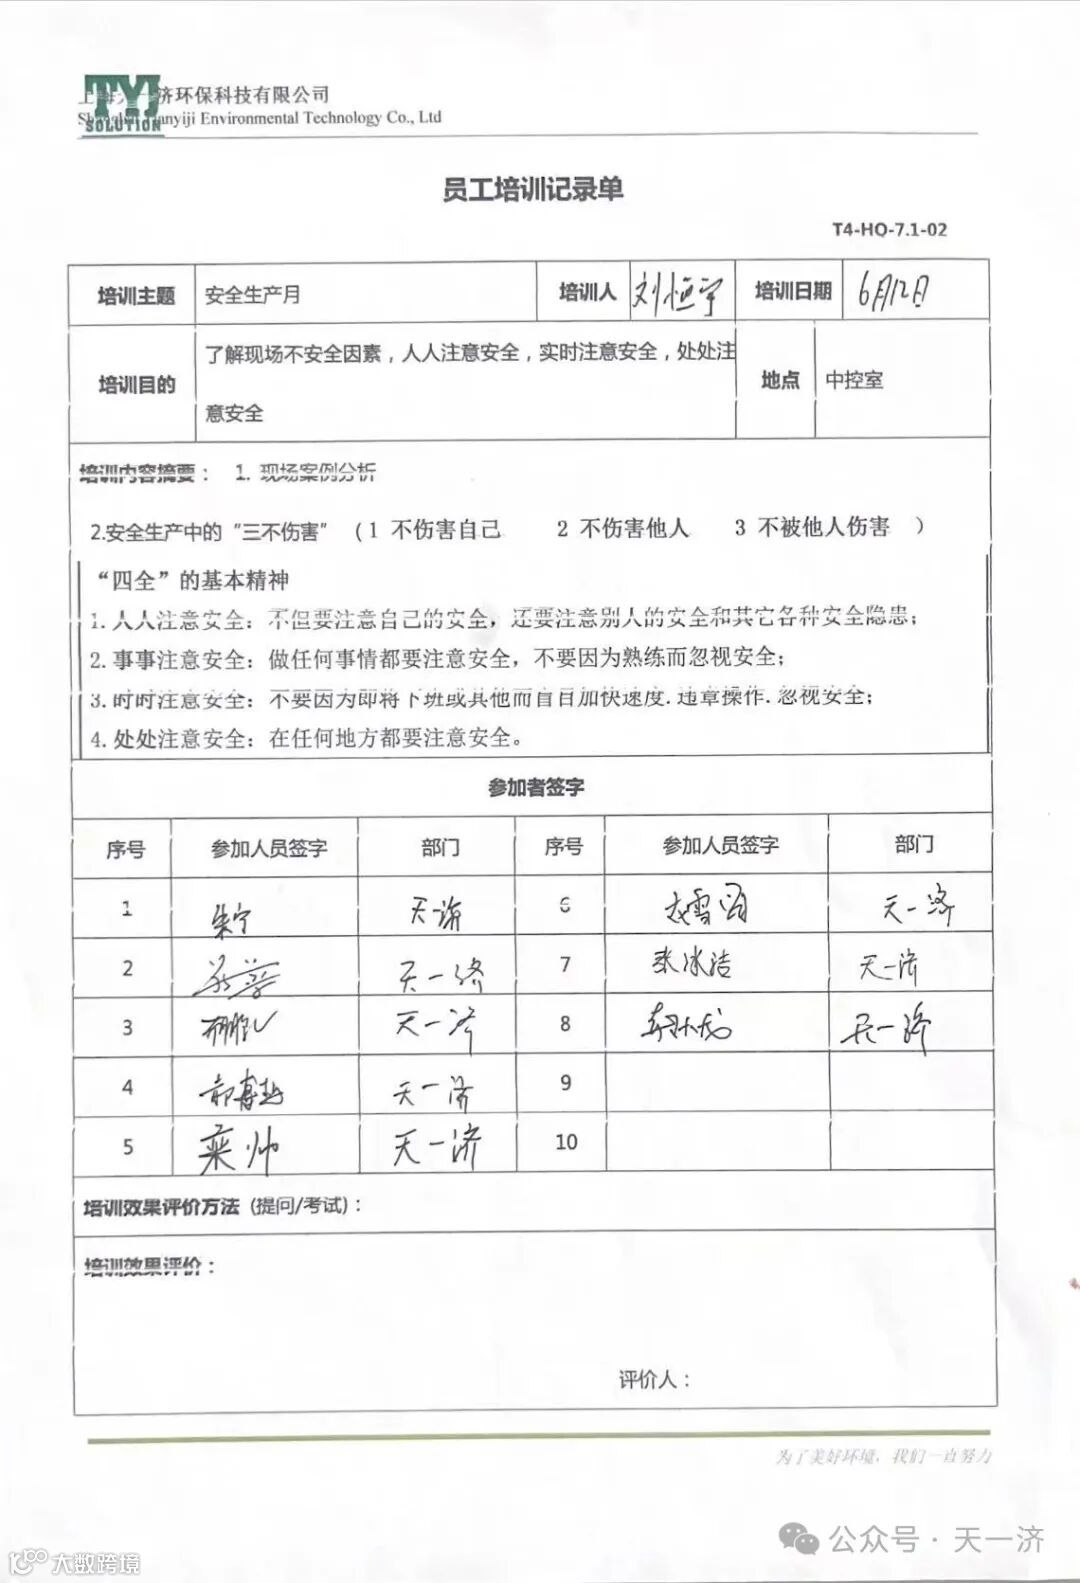 TYJ
SOLUTION
济环保科技有限公司
anyiji Environmental Technology Co., Ltd
员工培训记录单
T4-HQ-7.1-02
培训主题 安全生产月 培训人 刘恒宇 培训日期 6月12日
培训目的 了解现场不安全因素，人人注意安全，实时注意安全，处处注
意安全
地点 中控室
培训内容摘要： 1. 现场案例分析
2.安全生产中的“三不伤害”（1 不伤害自己 2 不伤害他人 3 不被他人伤害 ）
“四全”的基本精神
1.人人注意安全：不但要注意自己的安全，还要注意别人的安全和其它各种安全隐患；
2.事事注意安全：做任何事情都要注意安全，不要因为熟练而忽视安全；
3.时时注意安全：不要因为即将下班或其他而盲目加快速度.违章操作.忽视安全；
4.处处注意安全：在任何地方都要注意安全。
参加者签字
序号 参加人员签字 部门 序号 参加人员签字 部门
1 朱宁 天一济 6 天一济
2 天一济 7 张冰洁 天一济
3 天一济 8 天一济
4 天一济 9
5 栾帅 天一济 10
培训效果评价方法（提问/考试）：
培训效果评价：
评价人：
为了美好环境，我们一直努力
公众号·天一济
大数跨境